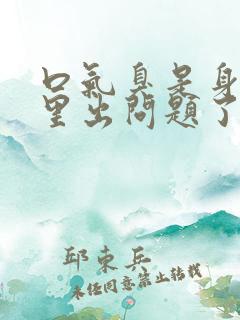 口氣臭是身
里出問題了
邱東兵
未经同意禁止转载